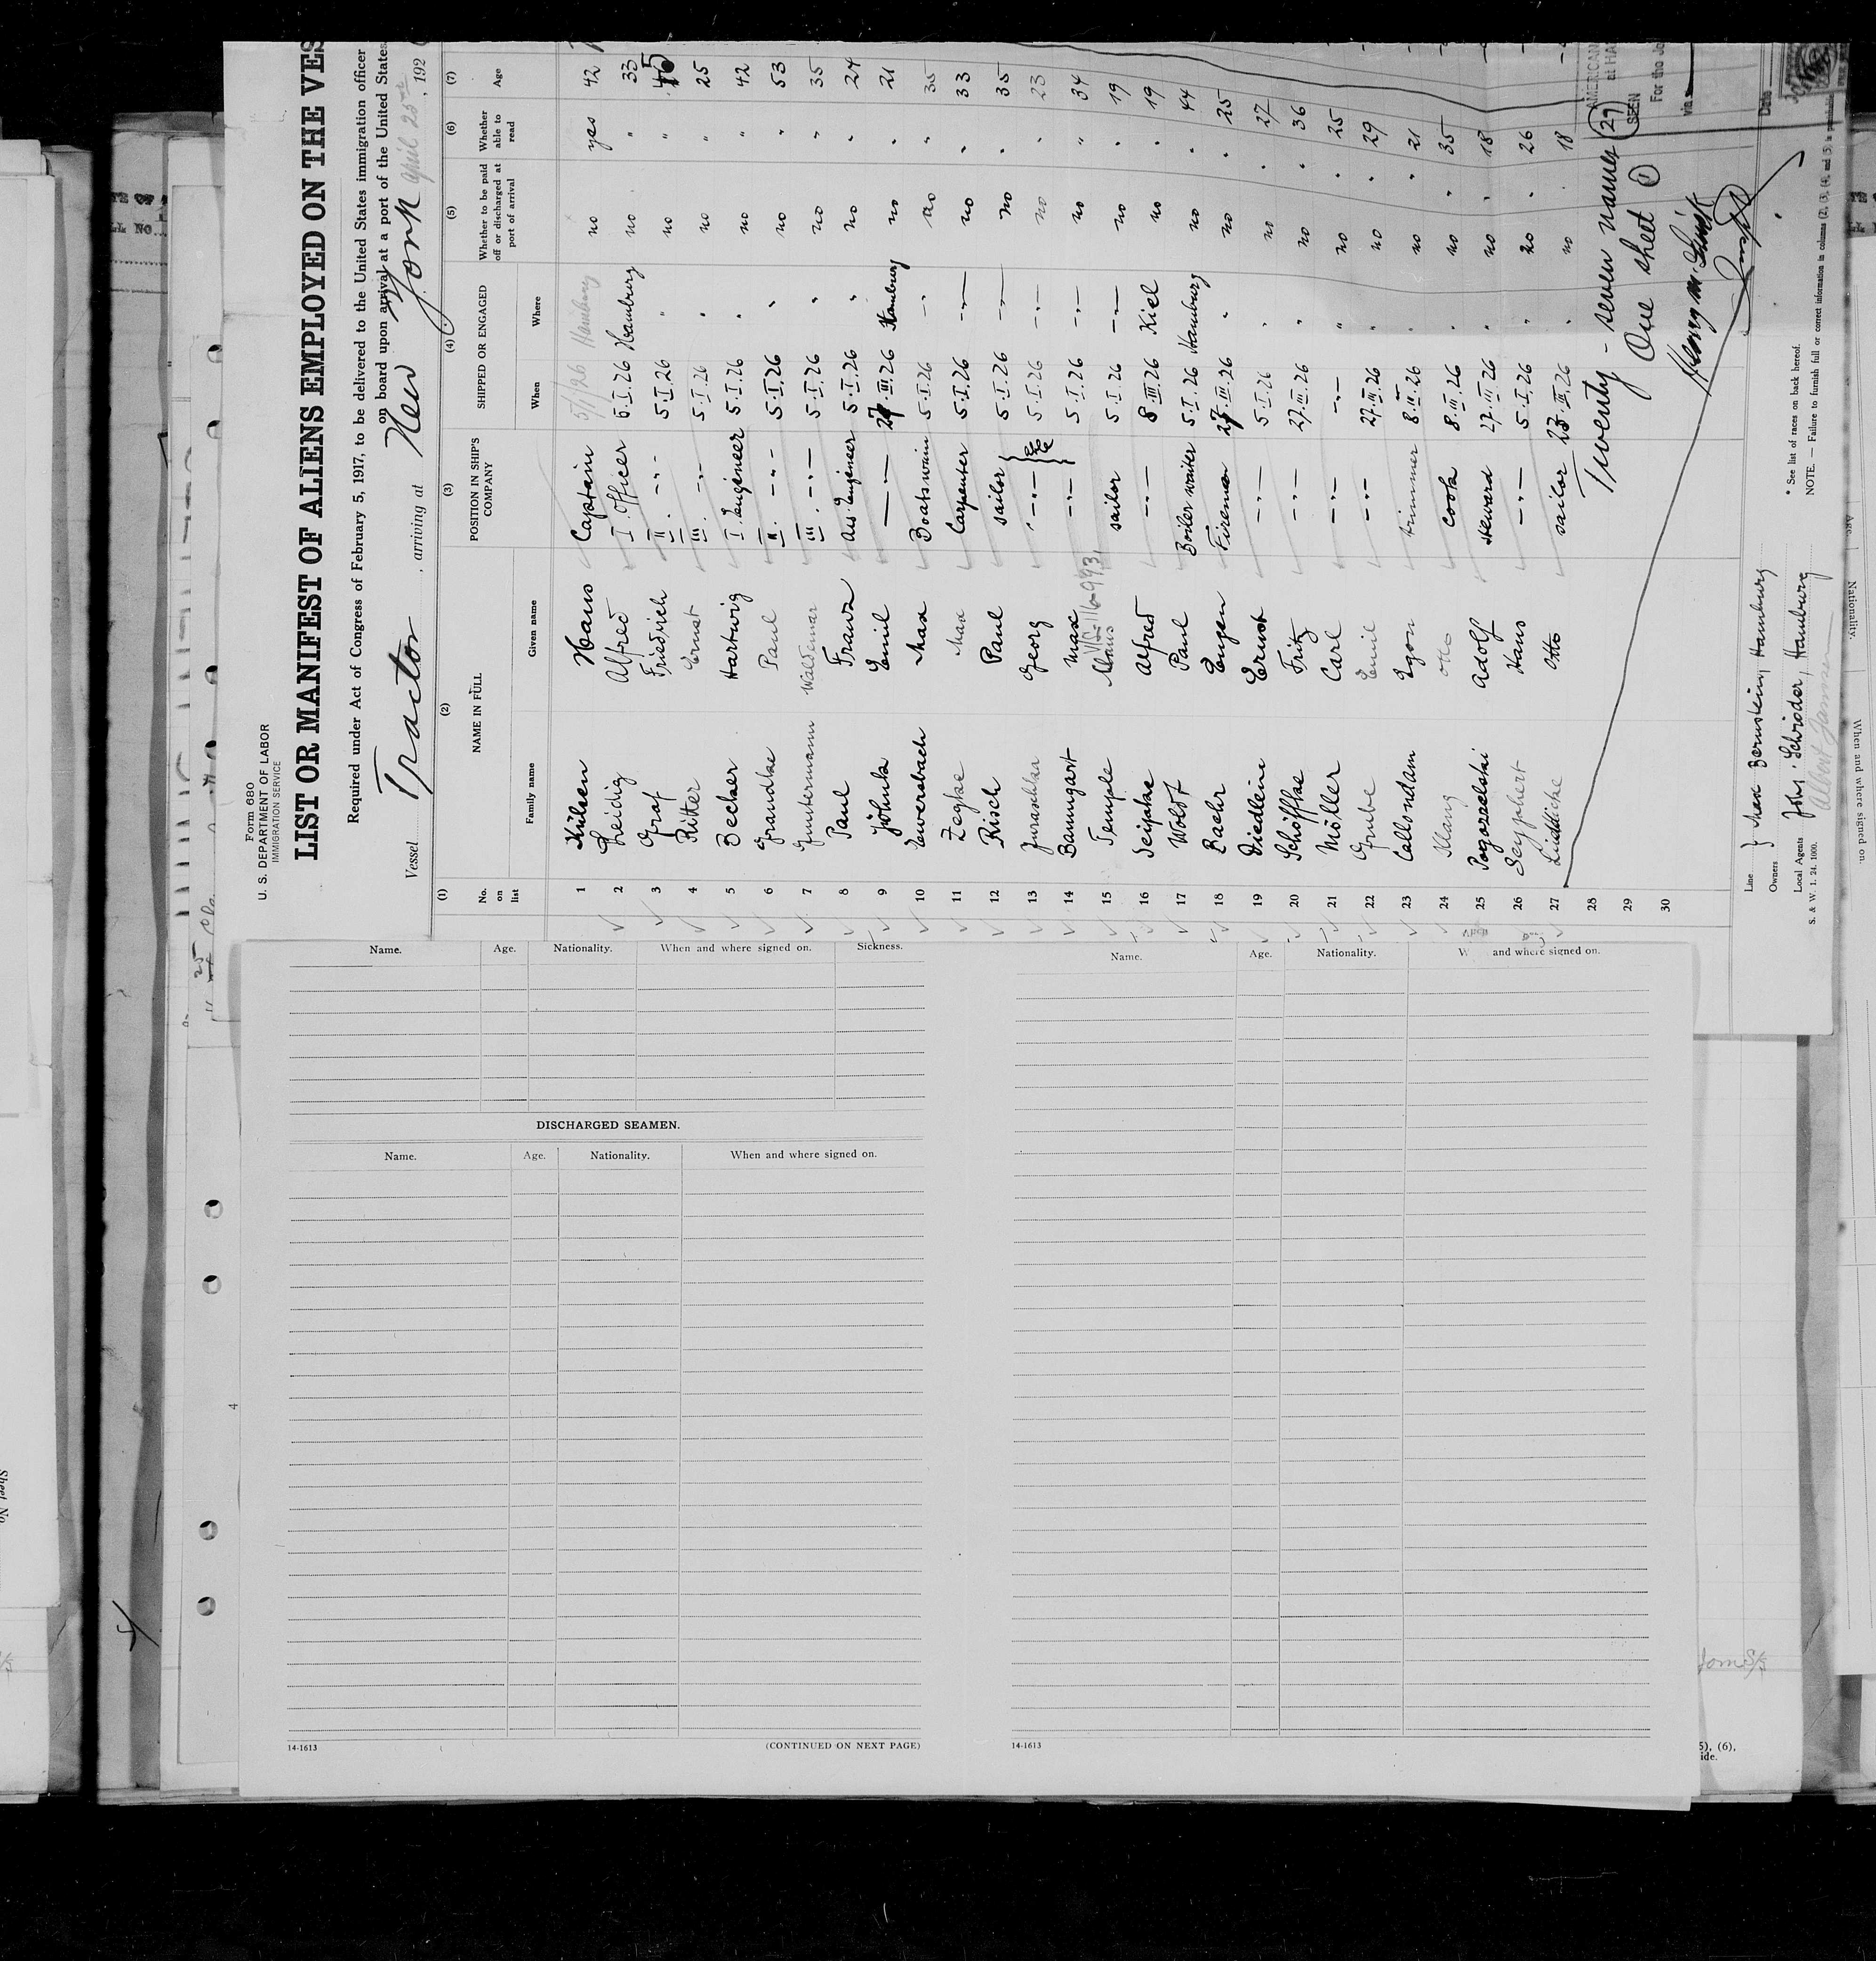 Form 680
U. S. DEPARTMENT OF LABOR
IMMIGRATION SERVICE
LIST OR MANIFEST OF ALIENS EMPLOYED ON THE VES
Required under Act of Congress of February 5, 1917, to be delivered to the United States immigration officer
on board upon arrival at a port of the United States
Vessel Tractor, arriving at New York April 25th, 192
(1) (2) (3) (4) (5) (6) (7)
No. on list NAME IN FULL POSITION IN SHIP'S COMPANY SHIPPED OR ENGAGED Whether to be paid off or discharged at port of arrival Whether able to read Age
Family name Given name When Where
1 Külsen Hans Captain 5/1/26 Hamburg no yes 42
2 Leidig Alfred I. Officer 6.I.26 Hamburg no " 33
3 Graf Friedrich II. -"- 5.I.26 " no " 45
4 Ritter Ernst III. -"- 5.I.26 " no " 25
5 Becker Hartwig I. Engineer 5.I.26 " no " 42
6 Grandke Paul II. -"- 5.I.26 " no " 53
7 Guntermann Waldemar III. -"- 5.I.26 " no " 35
8 Paul Franz Ass. Engineer 5.I.26 " no " 24
9 Jöhnk Emil -"- 27.III.26 Hamburg no " 21
10 Ewersbach Max Boatswain 5.I.26 -"- no " 35
11 Zegke Max Carpenter 5.I.26 -"- no " 33
12 Risch Paul sailor 5.I.26 -"- no " 35
13 Juraschka Georg -"- 5.I.26 -"- no " 23
14 Baumgart Max -"- 5.I.26 -"- no " 34
15 Temple Hans sailor 5.I.26 -"- no " 19
16 Seipke Alfred -"- 8.III.26 Kiel no " 19
17 Woldt Paul Boiler waiter 5.I.26 Hamburg no " 44
18 Baehr Eugen Fireman 27.III.26 " no " 25
19 Diedlein Ernst -"- 5.I.26 " no " 27
20 Schöffke Fritz -"- 27.III.26 " no " 36
21 Möller Carl -"- -"- " no " 25
22 Grube Emil -"- 27.III.26 " no " 29
23 Callondam Egon trimmer 8.III.26 " no " 21
24 Klang Otto cook 8.III.26 " no " 35
25 Pogorzelski Adolf steward 27.III.26 " no " 18
26 Seyphert Hans -"- 5.I.26 " no " 26
27 Otto sailor 23.III.26 " no " 18
28
29
30
Twenty-seven names (27)
One sheet (1)
AMERICAN
at HA
SEEN
For the Jo
via
Date
Line
Owners } Max Bernstein, Hamburg
Local Agents Johs. Schröder, Hamburg
Albert Jansen
S. & W. I. 24. 1000.
* See list of races on back hereof.
NOTE. — Failure to furnish full or correct information in columns (2), (3), (4), and (5) is punishable
Name. Age. Nationality. When and where signed on. Sickness.
DISCHARGED SEAMEN.
Name. Age. Nationality. When and where signed on.
14-1613 (CONTINUED ON NEXT PAGE)
Name. Age. Nationality. W and where signed on.
14-1613
5), (6),
ide.
4
Sheet No
Age.
Nationality.
When and where signed on.